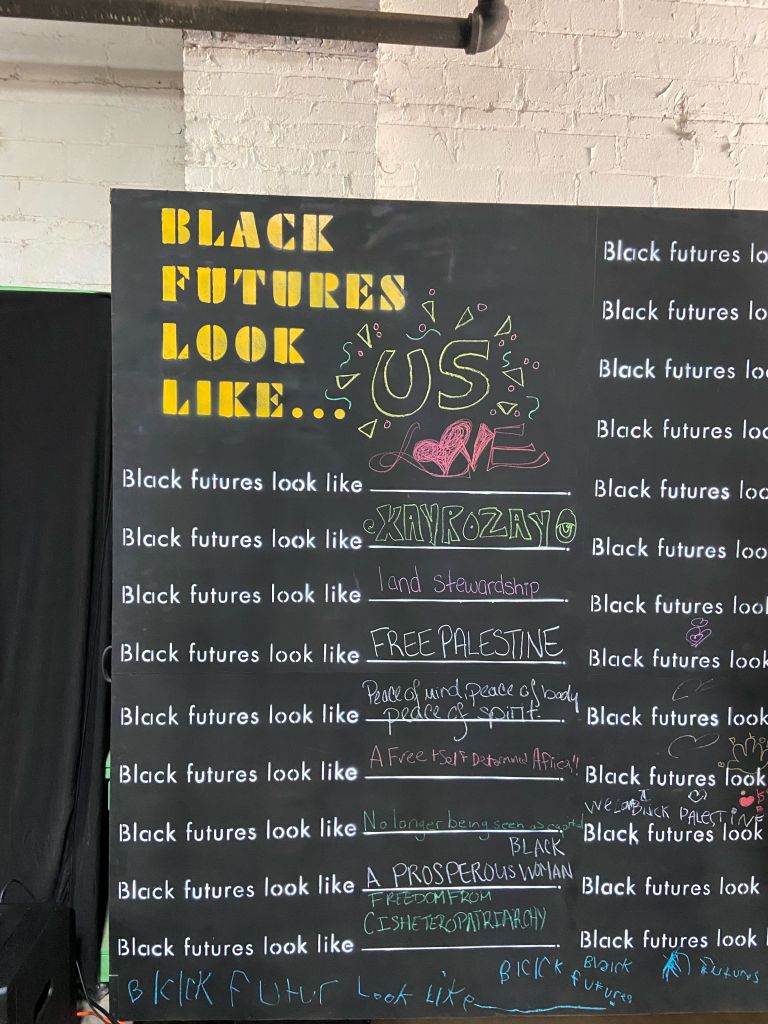 BLACK
FUTURES
LOOK
LIKE...
US
LOVE
Black futures look like
Black futures look like KAYROZAY
Black futures look like land stewardship
Black futures look like FREE PALESTINE
Peace of mind, peace of body
Black futures look like peace of spirit.
Black futures look like A Free + Self Determined Africa!!
Black futures look like No longer being seen as capital
BLACK
Black futures look like A PROSPEROUS WOMAN
FREEDOM FROM
CISHETEROPATRIARCHY
Black futures look like
Blclck Futur Look Like
Black futures lo
Black futures lo
Black futures loo
Black futures loo
Black futures loo
Black futures loo
Black futures look
Black futures look
Black futures look
Black futures look
We Love Black PALESTINE
Black futures look
Black futures look
Black futures look l
Blclck Black
futures
futures